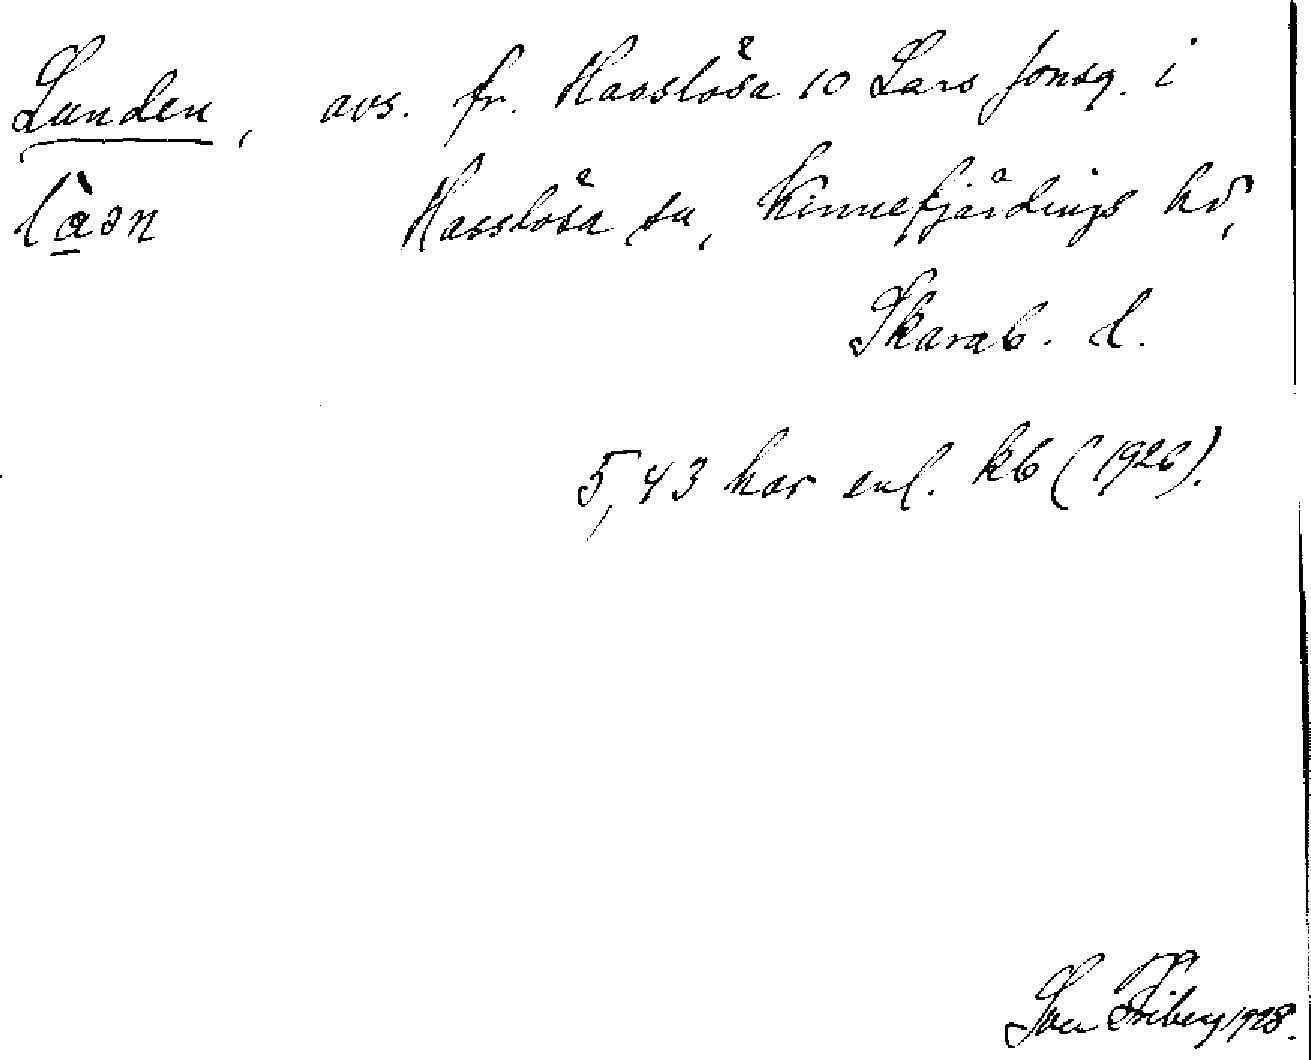 Lunden, avs. fr. Hasslösa 10 Lars Jonsg. i
Hasslösa sn, Kinnefjärdings hd,
Skarab. l.
5,43 har enl. kb (1926).
Sven Friberg 1928.